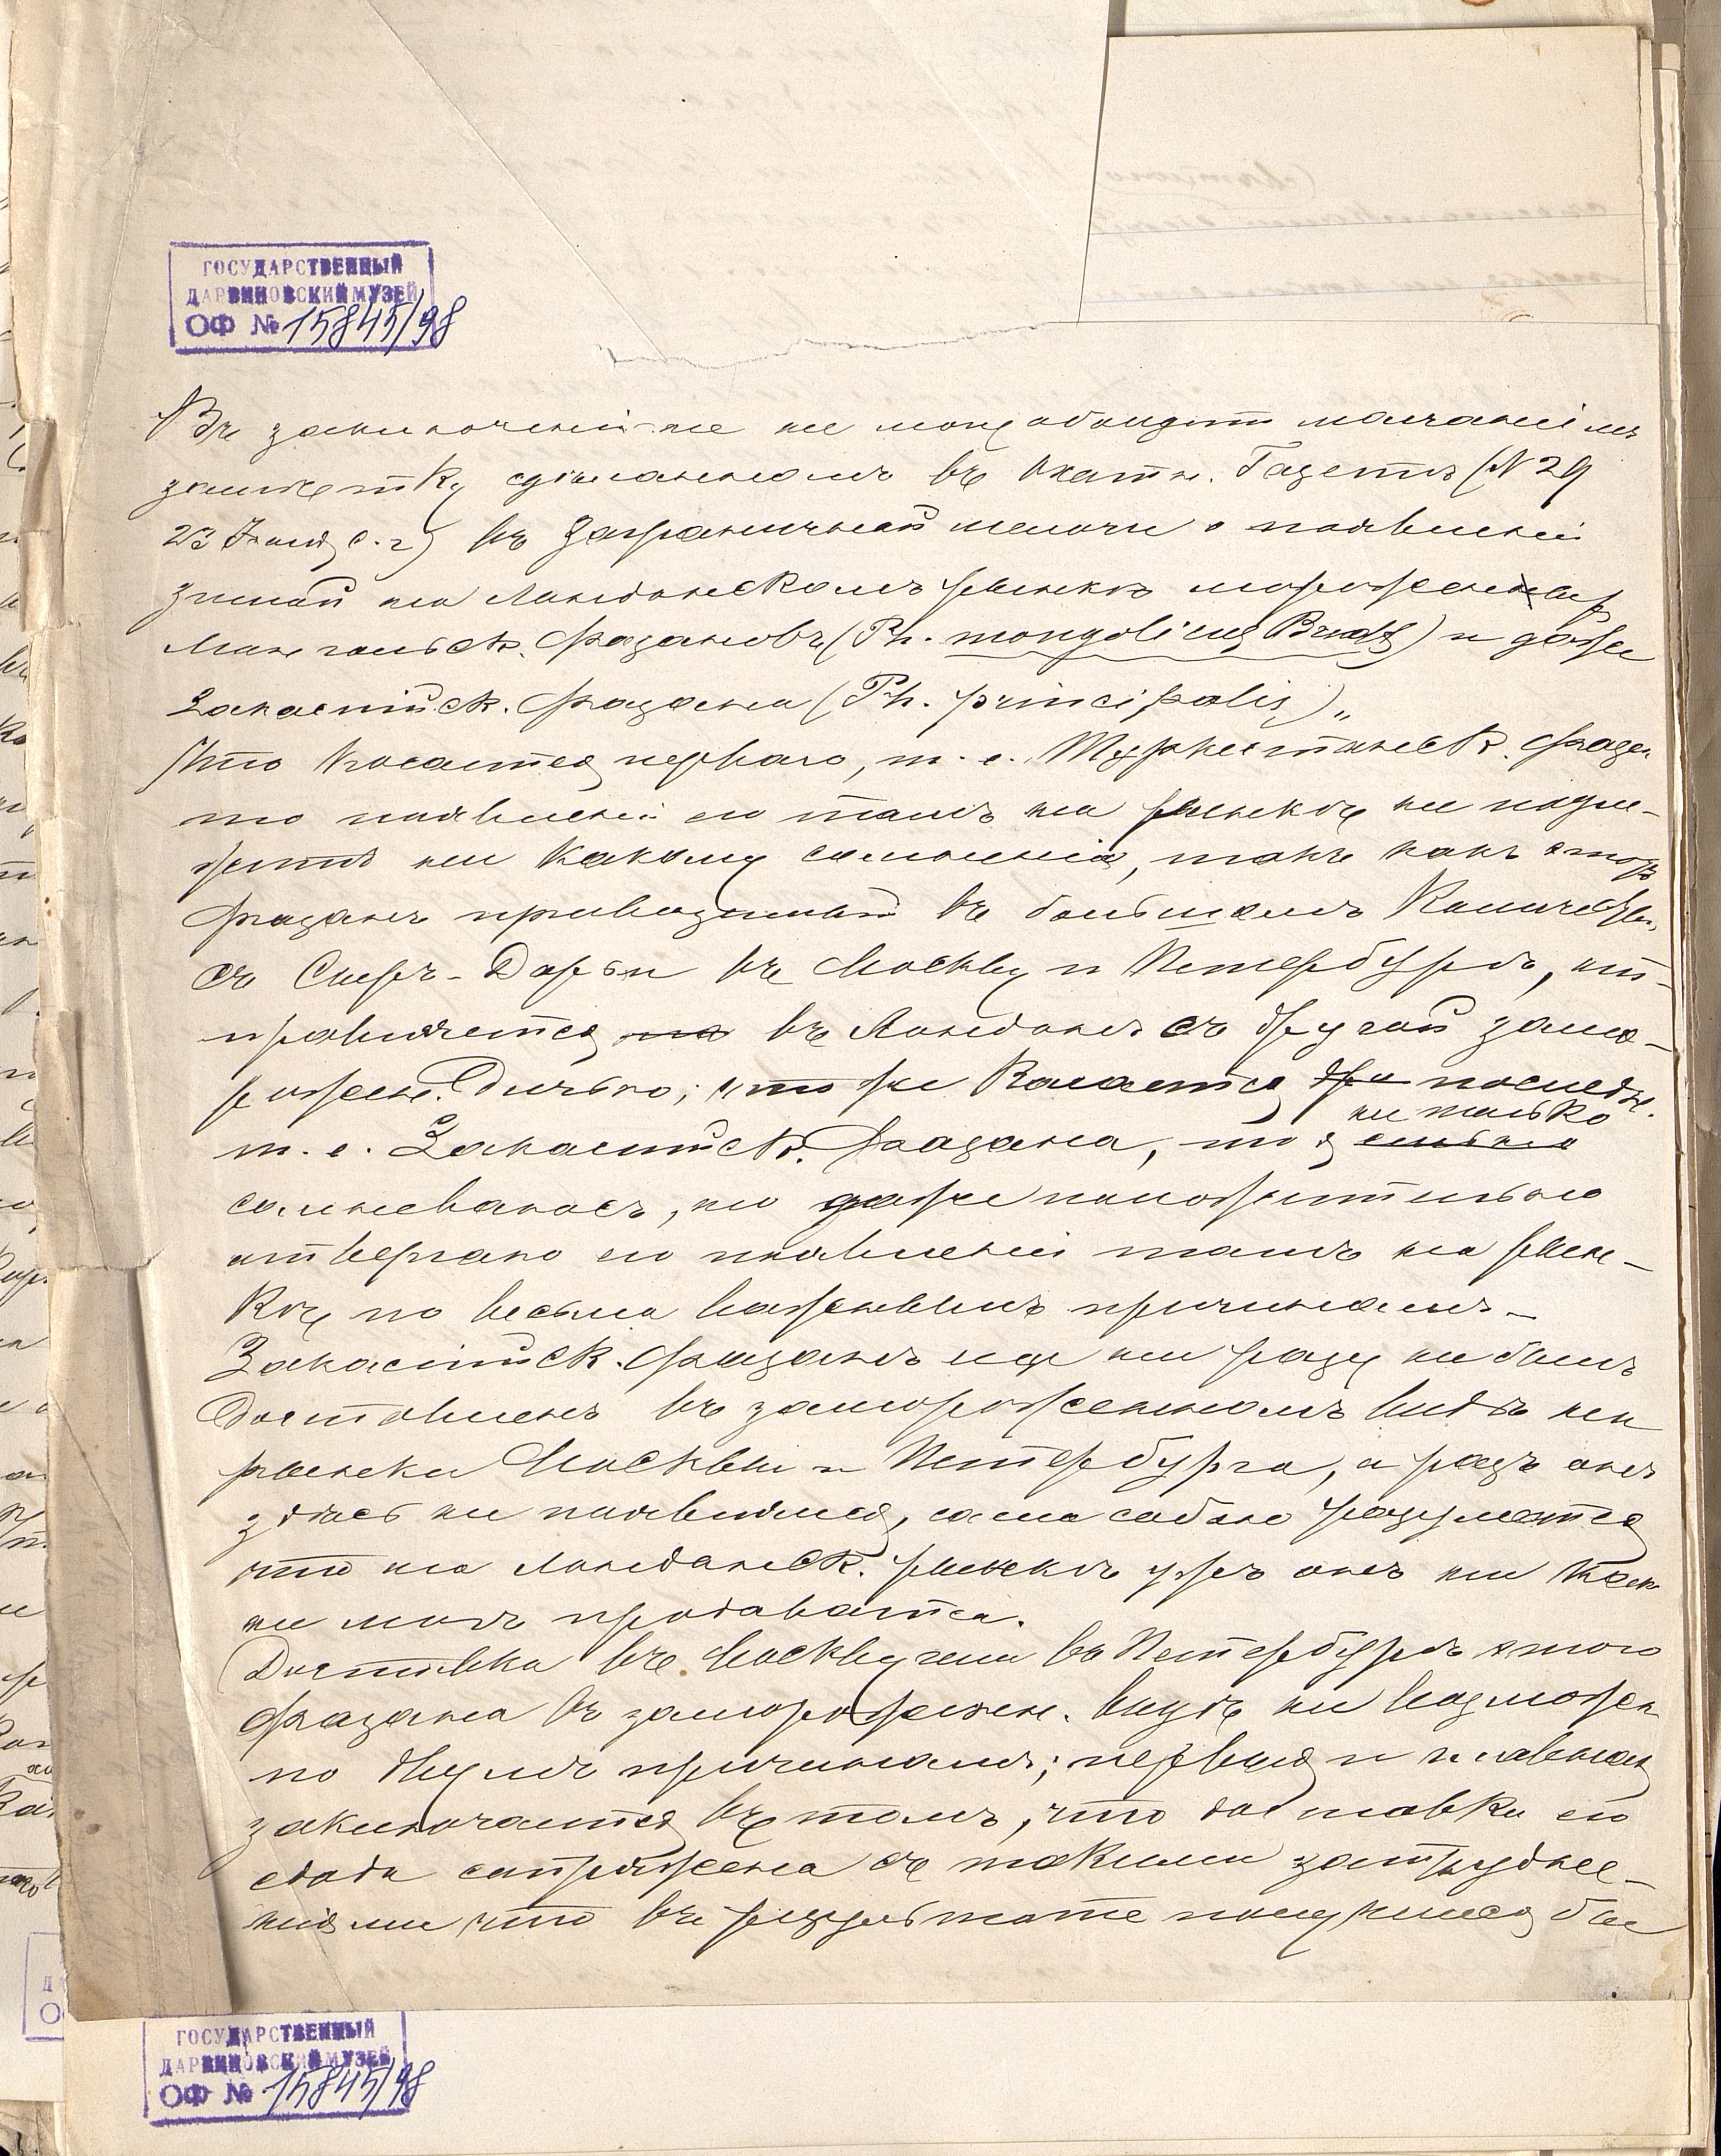 ГОСУДАРСТВЕННЫЙ
ДАРВИНОВСКИЙ МУЗЕЙ
ОФ № 15845/98
Въ заключеніи не могу обойдти молчаніемъ
замѣтку сдѣланном въ Охотн. Газетѣ (N 29
23 Іюля с. г) въ Заграничной мелочи о появленіи
зимой на Лондонскомъ рынкѣ мороженых
Монгольск. фазановъ (Ph. mongolicus Brndt) и даже
Закаспійск. фазана (Ph. principalis) „
Что касается перваго, т. е. Туркестанск. фазан
то появленіи его тамъ на рынкѣ не подле-
житъ ни какому сомненію, такъ какъ этотъ
фазанъ привозимый въ большомъ количеств,
съ Сыръ-Дарьи въ Москву и Петербургъ, от-
правляется въ Лондонъ съ другой замо-
рожен. Дичью; что же касается последн.
не только
т. е. Закаспійск. Фазана, то я сильно
сомневаюсь, но даже положительно
отвергаю его появленіи тамъ на рын-
кѣ по весьма важнымъ причинамъ-
Закаспійск. фазанъ еще ни разу не былъ
Доставленъ въ замороженномъ видѣ на
рынки Москвы и Петербурга, а разъ онъ
здѣсь не появлялся, само собою разумѣется
что на Лондонск. рынкѣ ужъ онъ ни как
не могъ продаватся.
Доставка въ Москву или въ Петербургъ этого
Фазана въ заморожен. видѣ не возможн
по двумъ причинамъ; первая и главная
заключается въ томъ, что доставка его
сюда сопряжена съ такими затрудне-
ніями что въ результате получился бы
ГОСУДАРСТВЕННЫЙ
ДАРВИНОВСКИЙ МУЗЕЙ
ОФ № 15845/98